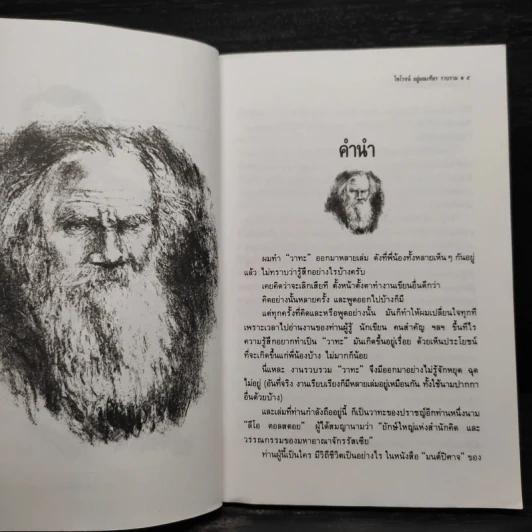 ไพโรจน์ อยู่มณเฑียร รวบรวม ● ๕
คำนำ
ผมทำ "วาทะ" ออกมาหลายเล่ม ดังที่พี่น้องทั้งหลายเห็นๆ กันอยู่
แล้ว ไม่ทราบว่ารู้สึกอย่างไรบ้างครับ
เคยคิดว่าจะเลิกเสียที ตั้งหน้าตั้งตาทำงานเขียนอื่นดีกว่า
คิดอย่างนั้นหลายครั้ง และพูดออกไปบ้างก็มี
แต่ทุกครั้งที่คิดและหรือพูดอย่างนั้น มันก็ทำให้ผมเปลี่ยนใจทุกที
เพราะเวลาไปอ่านงานของท่านผู้รู้ นักเขียน คนสำคัญ ฯลฯ ขึ้นทีไร
ความรู้สึกอยากทำเป็น "วาทะ" มันเกิดขึ้นอยู่เรื่อย ด้วยเห็นประโยชน์
ที่จะเกิดขึ้นแก่พี่น้องบ้าง ไม่มากก็น้อย
นี่แหละ งานรวบรวม "วาทะ" จึงมีออกมาอย่างไม่รู้จักหยุด ฉุด
ไม่อยู่ (อันที่จริง งานเรียบเรียงก็มีหลายเล่มอยู่เหมือนกัน ทั้งใช้นามปากกา
อื่นด้วยบ้าง)
และเล่มที่ท่านกำลังถืออยู่นี้ ก็เป็นวาทะของปราชญ์อีกท่านหนึ่งนาม
"ลีโอ ตอลสตอย" ผู้ได้สมญานามว่า "ยักษ์ใหญ่แห่งสำนักคิด และ
วรรณกรรมของมหาอาณาจักรรัสเซีย"
ท่านผู้นี้เป็นใคร มีวิถีชีวิตเป็นอย่างไร ในหนังสือ "มนต์ปีศาจ" ของ